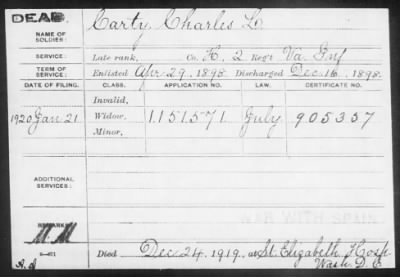 DEAD.
NAME OF SOLDIER: Carty, Charles L.
SERVICE: Late rank, Co. K, 2 Reg't Va. Inf
TERM OF SERVICE: Enlisted Apr. 29, 1898. Discharged Dec. 16, 1898.
DATE OF FILING. CLASS. APPLICATION NO. LAW. CERTIFICATE NO.
Invalid,
1920 Jan 21 Widow, 1.151.571 July 905337
Minor,
ADDITIONAL SERVICES:
WAR WITH SPAIN
REMARKS
MM
Died Dec. 24, 1919, at St. Elizabeth Hosp
Wash. D.C.